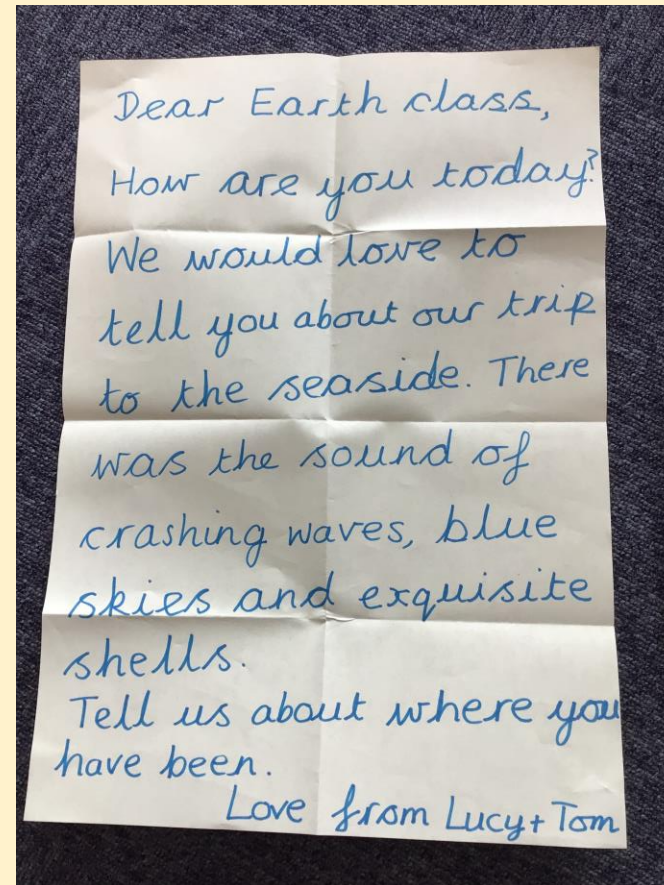 Dear Earth class,
How are you today?
We would love to
tell you about our trip
to the seaside. There
was the sound of
crashing waves, blue
skies and exquisite
shells.
Tell us about where you
have been.
Love from Lucy + Tom